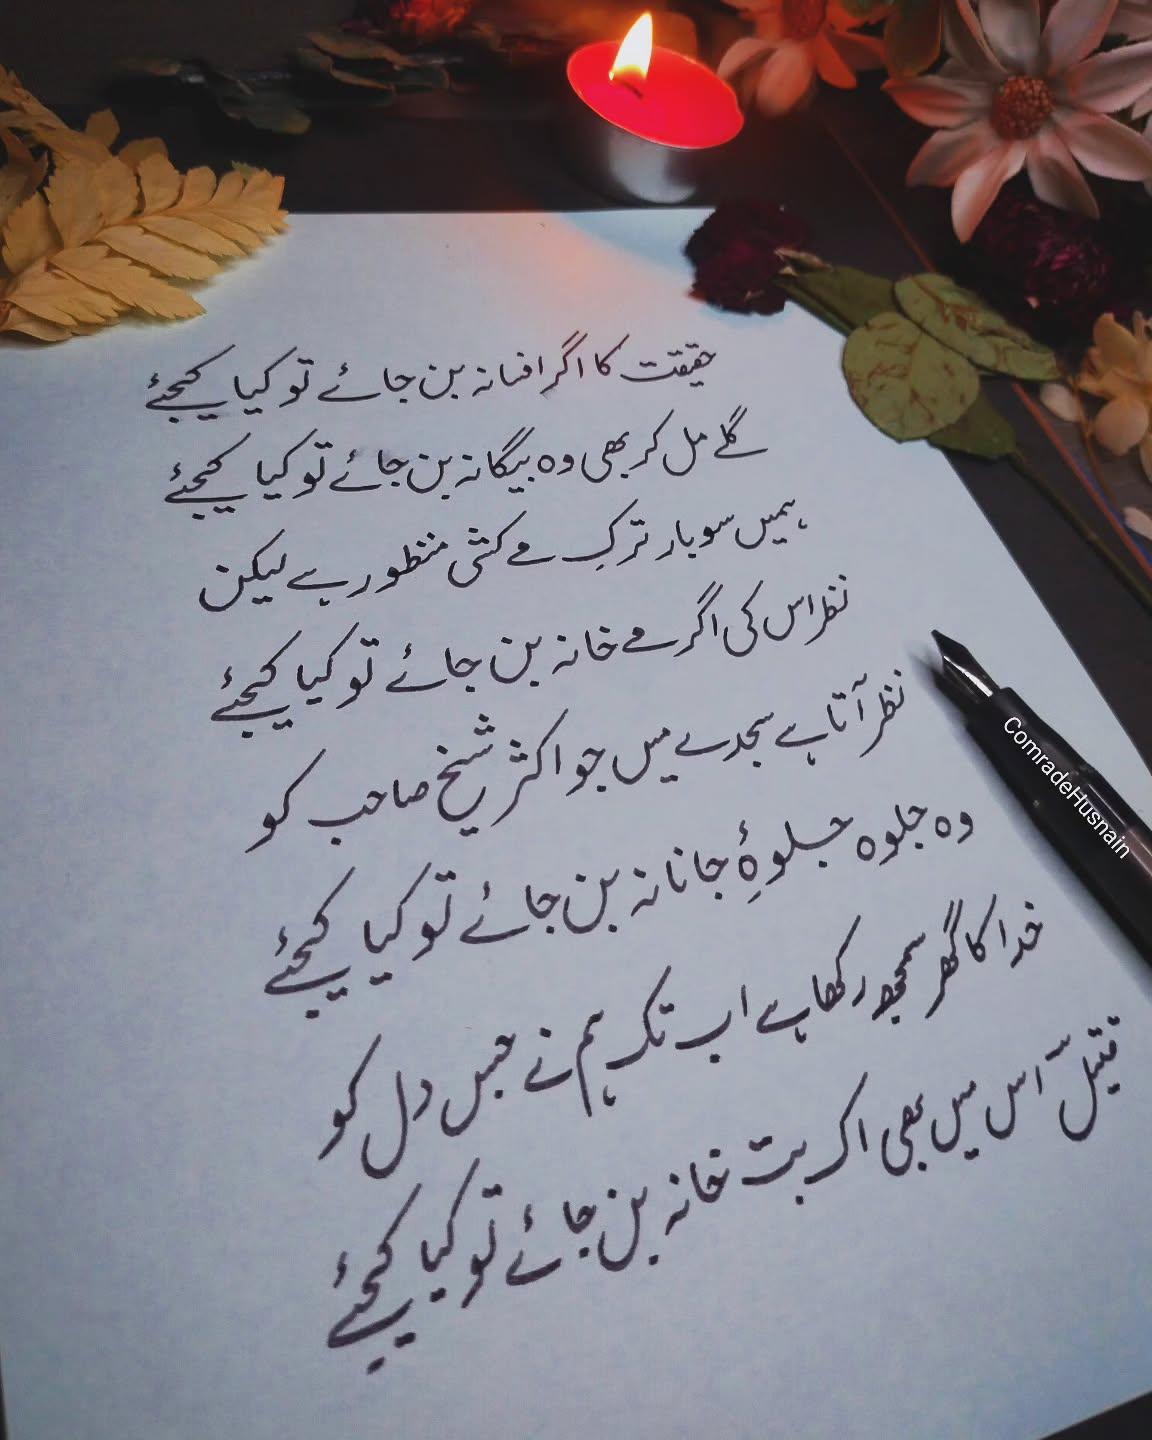 حقیقت کا اگر افسانہ بن جائے تو کیا کیجئے
گلے مل کر بھی وہ بیگانہ بن جائے تو کیا کیجئے
ہمیں سو بار ترکِ مے کشی منظور ہے لیکن
نظر اس کی اگر مے خانہ بن جائے تو کیا کیجئے
نظر آتا ہے سجدے میں جو اکثر شیخ صاحب کو
وہ جلوہ جلوۂِ جانانہ بن جائے تو کیا کیجئے
خدا کا گھر سمجھ رکھا ہے اب تک ہم نے جس دل کو
قتیلؔ اس میں بھی اک بت خانہ بن جائے تو کیا کیجئے
ComradeHusnain